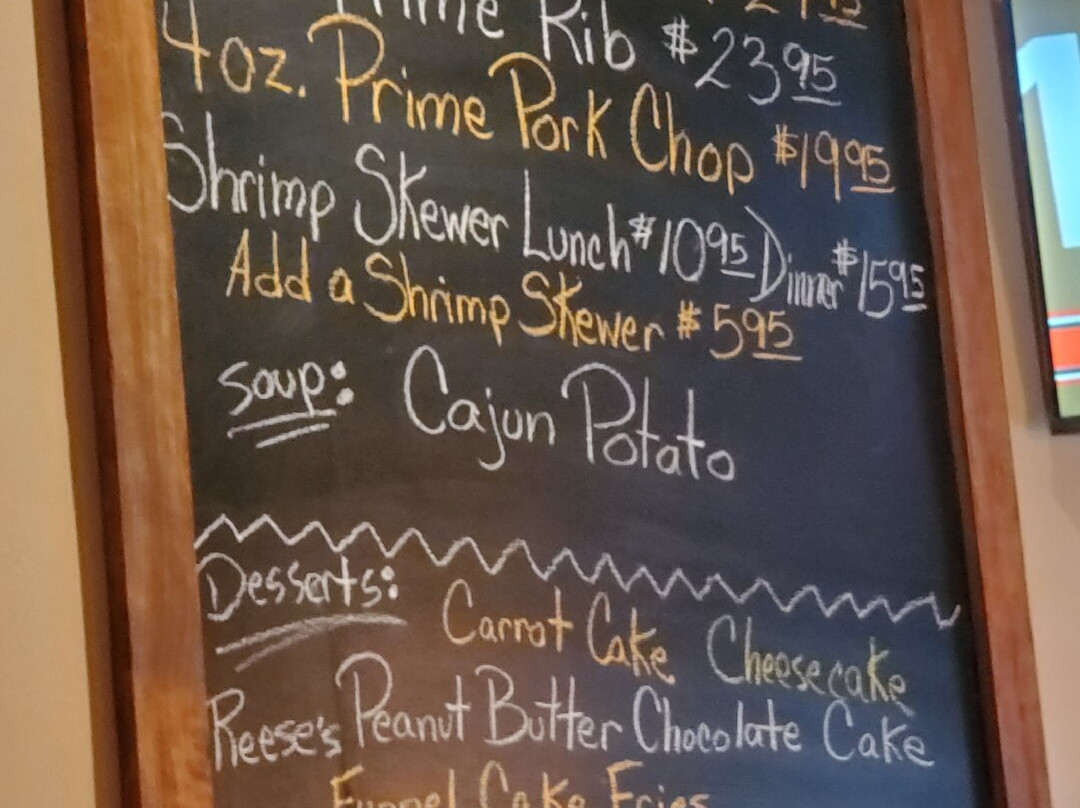 Prime Rib $23.95
4oz. Prime Pork Chop $19.95
Shrimp Skewer Lunch $10.95 Dinner $15.95
Add a Shrimp Skewer $5.95
Soup: Cajun Potato
Desserts: Carrot Cake Cheesecake
Reese's Peanut Butter Chocolate Cake
Funnel Cake Fries